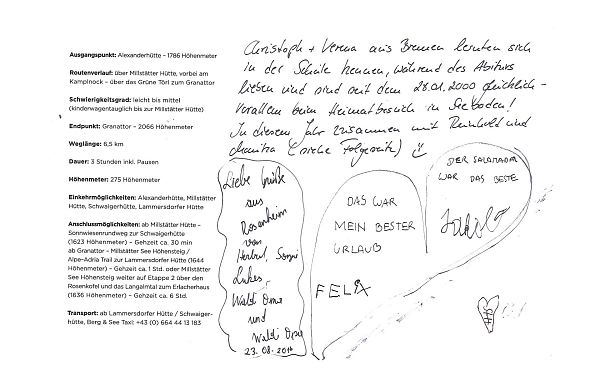 Ausgangspunkt: Alexanderhütte – 1786 Höhenmeter
Routenverlauf: über Millstätter Hütte, vorbei am
Kamplnock – über das Grüne Törl zum Granattor
Schwierigkeitsgrad: leicht bis mittel
(kinderwagentauglich bis zur Millstätter Hütte)
Endpunkt: Granattor – 2066 Höhenmeter
Weglänge: 6,5 km
Dauer: 3 Stunden inkl. Pausen
Höhenmeter: 275 Höhenmeter
Einkehrmöglichkeiten: Alexanderhütte, Millstätter
Hütte, Schwaigerhütte, Lammersdorfer Hütte
Anschlussmöglichkeiten: ab Millstätter Hütte –
Sonnwiesenrundweg zur Schwaigerhütte
(1623 Höhenmeter) – Gehzeit ca. 30 min
ab Granattor – Millstätter See Höhensteig /
Alpe-Adria Trail zur Lammersdorfer Hütte (1644
Höhenmeter) – Gehzeit ca. 1 Std. oder Millstätter
See Höhensteig weiter auf Etappe 2 über den
Rosenkofel und das Langalmtal zum Erlacherhaus
(1636 Höhenmeter) – Gehzeit ca. 6 Std.
Transport: ab Lammersdorfer Hütte / Schwaiger-
hütte, Berg & See Taxi: +43 (0) 664 44 13 183
Christoph + Verena aus Bremen lernten sich
in der Schule kennen, während des Abiturs
lieben und sind seit dem 28.01.2000 glücklich -
vorallem beim Heimatbesuch in Seeboden!
In diesem Jahr zusammen mit Reinhold und
(siehe Folgeseite)
Liebe Grüße
aus
Rosenheim
von
Lukas,
Waldi Oma
und
Waldi Opa
23.08.2014
DAS WAR
MEIN BESTER
URLAUB
FELIX
DER SALAMANDA
WAR DAS BESTE